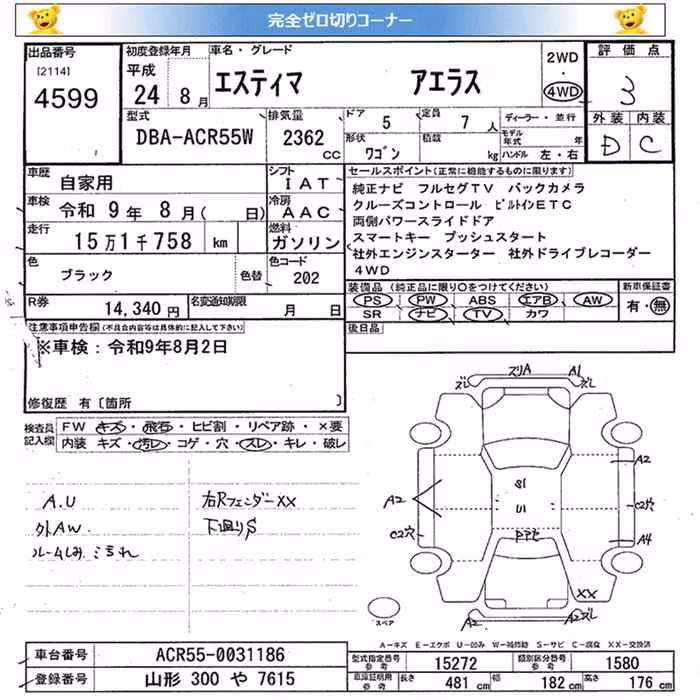 完全ゼロ切りコーナー
出品番号
[2114]
4599
初度登録年月
平成
24 8 月
車名・グレード
エスティマ アエラス
2WD
・
4WD
評価点
3
外装 内装
D C
型式
DBA-ACR55W
排気量
2362
CC
ドア
5
定員
7 人
形状
ワゴン
積載
kg
ディーラー・並行
モデル
年式 年
ハンドル 左・右
車歴
自家用
シフト
IAT
車検
令和 9年 8月( 日)
冷房
AAC
走行
15万1千758 km
燃料
ガソリン
色
ブラック
色替
色コード
202
R券
14,340 円
名変通知期限
月 日
セールスポイント(正常に機能するものに限ります)
純正ナビ フルセグTV バックカメラ
クルーズコントロール ビルトインETC
両側パワースライドドア
スマートキー プッシュスタート
社外エンジンスターター 社外ドライブレコーダー
4WD
装備品(純正品に限り○をつけてください)
PS PW ABS エアB AW
SR ナビ TV カワ
新車保証書
有・無
後日品
注意事項申告欄(不具合内容等は具体的に記入して下さい)
※車検:令和9年8月2日
修復歴 有〔箇所 〕
検査員
記入欄
FW キズ・飛石・ヒビ割・リペア跡・×要
内装 キズ・汚レ・コゲ・穴・スレ・キレ・破レ
A.U
外AW.
ルームしみ こきれ
右Rフェンダー××
下廻りS
ズレ ズリA A1 ズレ
A2
A2
C2穴
C2穴
A4
××
A2 A2 ズレ
スペア
A-キズ E-エクボ U-凹み W-補修跡 S-サビ C-腐食 XX-交換済
車台番号
ACR55-0031186
登録番号
山形 300 や 7615
型式指定番号
参考
15272
類別区分番号
参考
1580
車庫証明用
参考
長さ
481 cm
幅
182 cm
高さ
176 cm